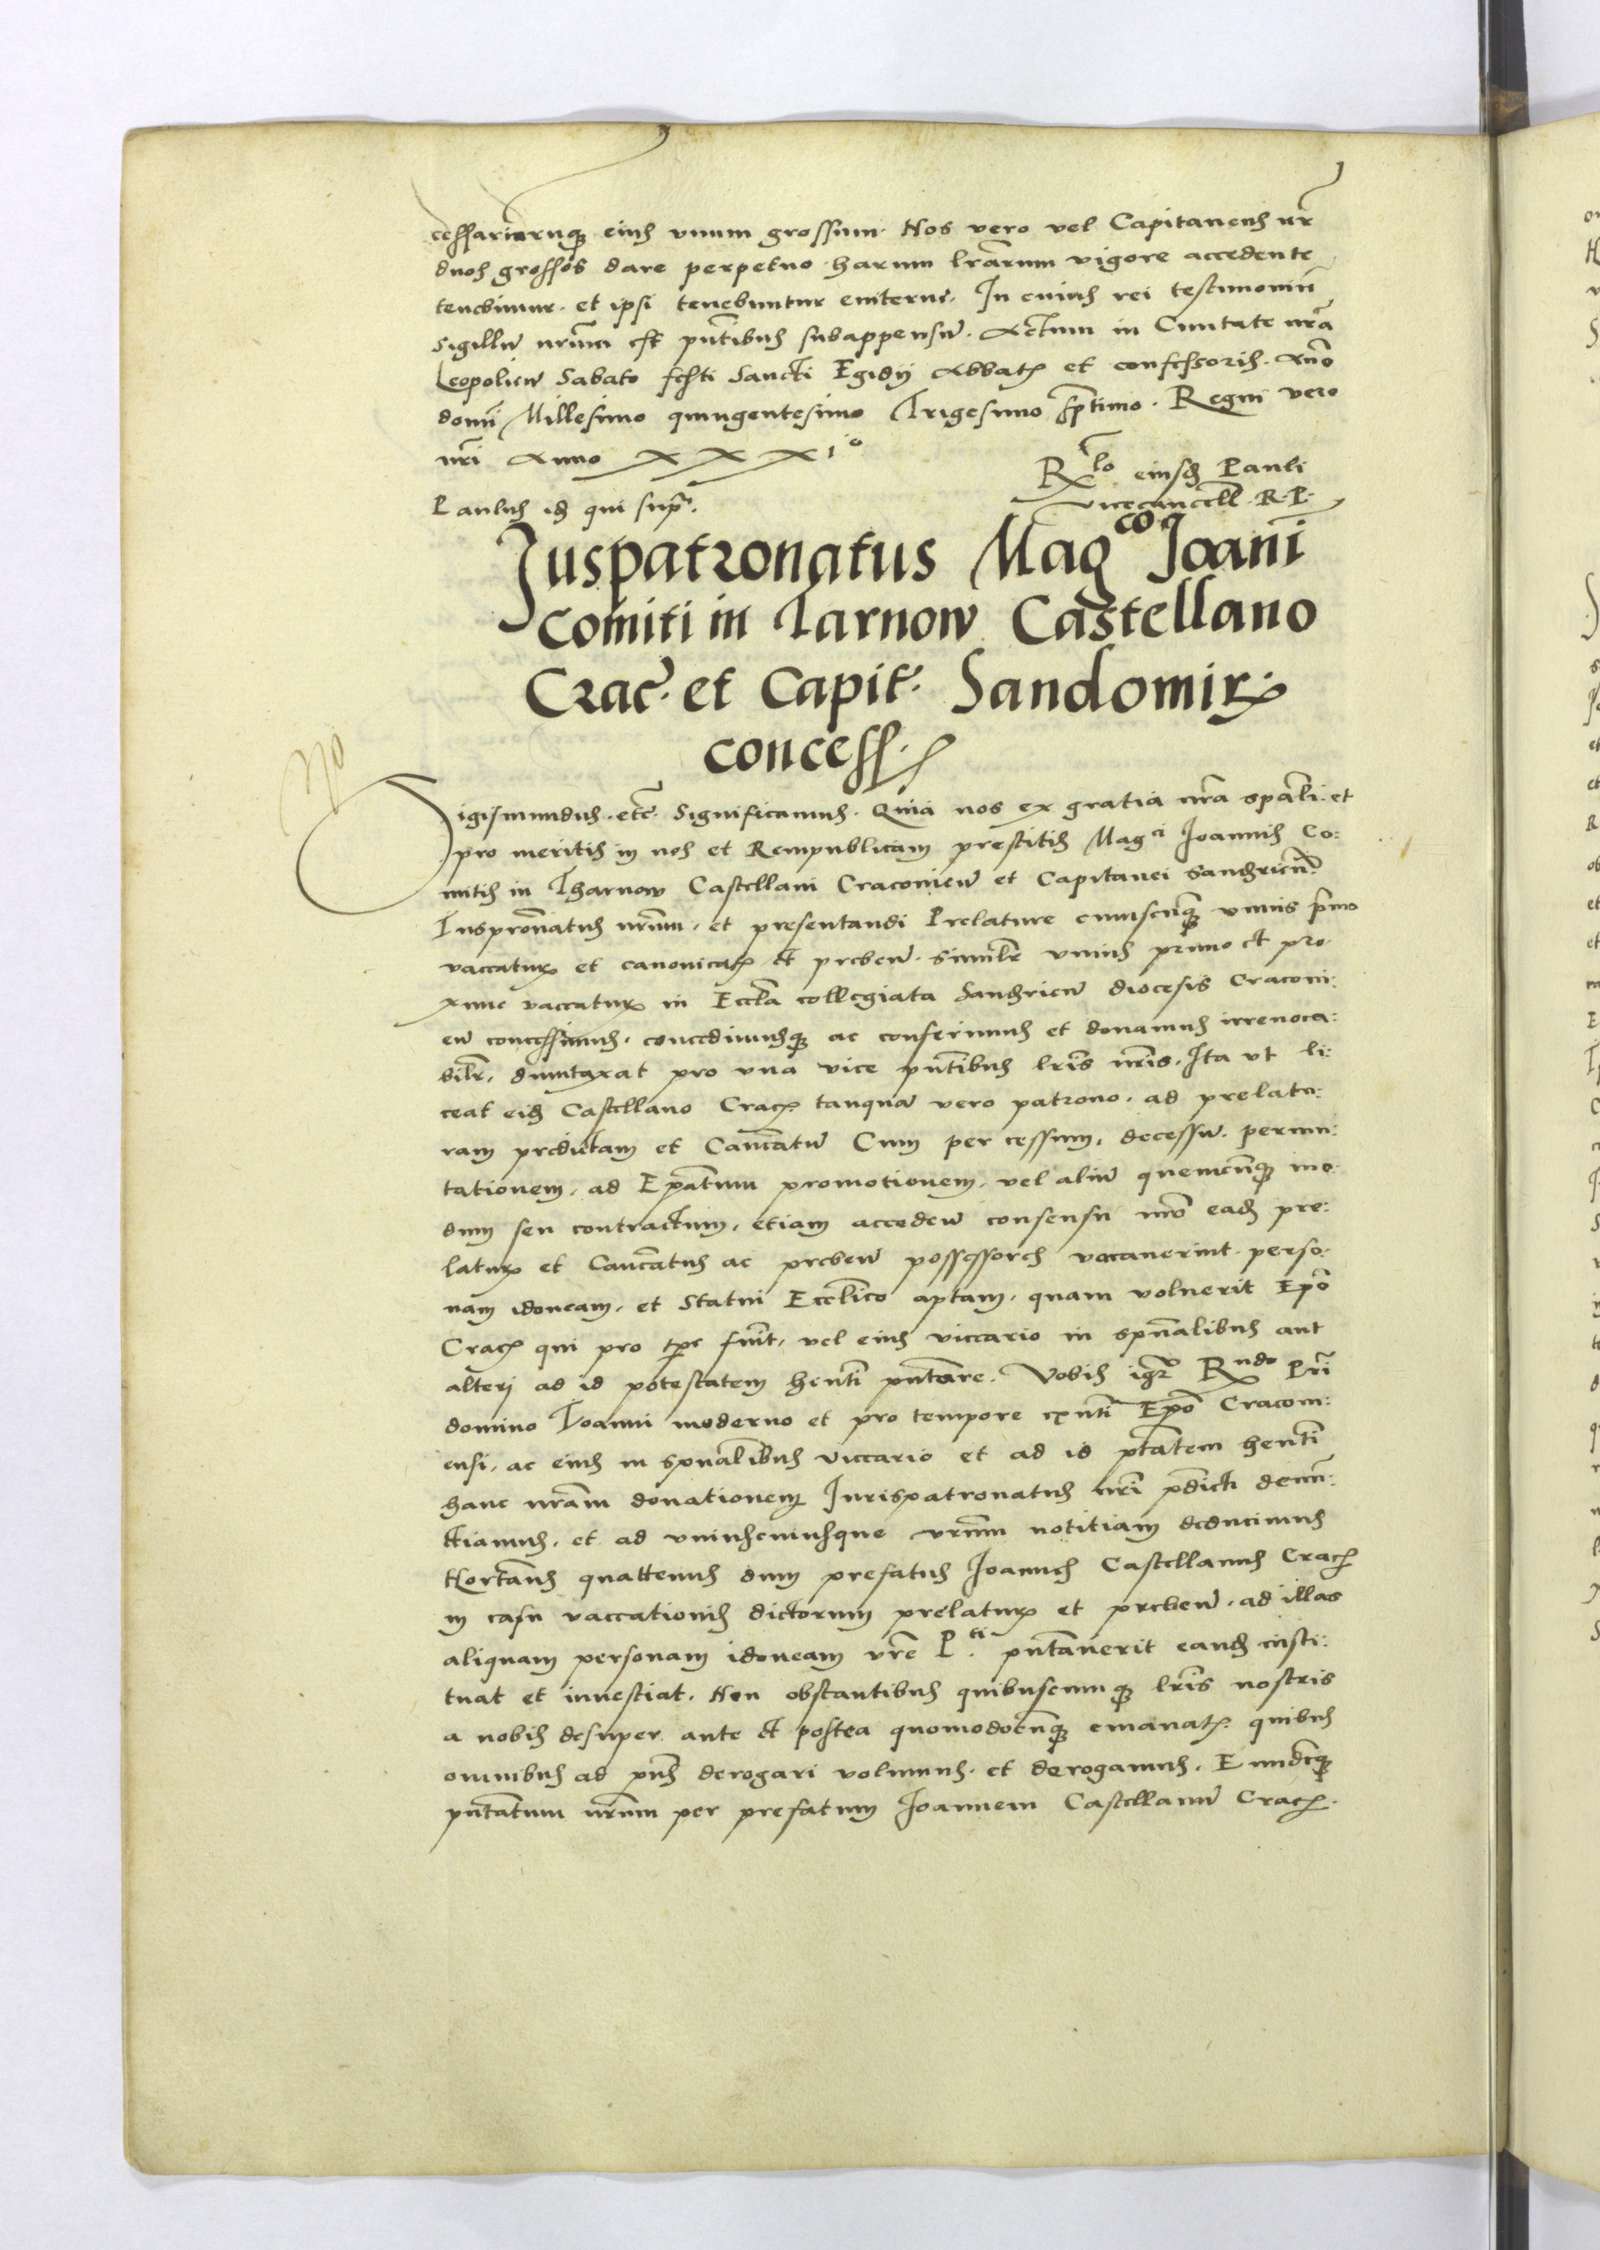 cessariarumq; eius vnum grossum. Nos vero vel Capitaneus nr̄
duos grossos dare perpetuo harum lr̄arum vigore accedente
tenebimur. et ipsi tenebuntur eviterne. In cuius rei testimoniū
Sigillū nr̄um est pn̄tibus subappensū. Actum in Ciuitate nr̄a
Leopolien̄ Sabato festi Sancti Egidij Abbat̄ et confessoris. Anō
domī Millesimo quingentesimo Trigesimo sp̄timo. Regni vero
nr̄i Anno XXXIº
Rlo eiusd Pauli
vicecancell. R. P.
Paulus id qui sup̄.
Iuspatronatus Magco Ioani
Comiti in Tarnow Castellano
Crac̄. et Capit̄. Sandomir
concess.
No
Sigismundus. etc̄. Significamus. Quia nos ex gratia nr̄a spāli. et
pro meritis in nos et Rempublicam prestitis Magci Ioannis Co:
mitis in Tharnow Castellani Cracovien̄ et Capitanei Sandrien̄.
Iusprōnatus nr̄um. et presentandi Prelature cuiuscūq; vnius p̄mo
vaccatur̄ et canonicat̄ et preben̄. similr̄ vnius primo et pro
xime vaccatur̄ in Eccl̄a collegiata Sandrien̄ diocesis Cracoui:
en̄ concessimus. concedimusq; ac conferimus et donamus irreuoca:
bilr̄. dumtaxat pro vna vice pn̄tibus lr̄is nr̄is. Ita vt li:
ceat eid Castellano Crac̄ tanquā vero patrono. ad prelatu:
ram predictam et Can̄catū Cum per cessum. decessū. permu:
tationem. ad Ep̄atum promotionem. vel aliū quemcūq; mo
dum seu contractum. etiam acceden̄ consensu nr̄o ead pre:
latur̄ et Can̄catus ac preben̄ possessores vaccauerint. perso:
nam idoneam. et Statui Eccl̄ico aptam. quam voluerit Ep̄o
Crac̄ qui pro tp̄e fuīt. vel eius viccario in spūalibus aut
alteri ad id potestatem hen̄ti pn̄tare. Vobis igr̄ Rndo Pr̄i
domino Ioanni moderno et pro tempore exn̄ti Ep̄o Cracoui:
ensi. ac eius in spūalibus viccario et ad id pt̄atem hen̄ti
hanc nr̄am donationem Iurispatronatus nr̄i p̄dicti denū:
ttiamus. et ad vniuscuiusque vr̄um notitiam deducimus
Hortan̄s quattenus dum prefatus Ioannes Castellanus Crac̄
in casu vaccationis dictorum prelatur̄ et preben̄. ad illas
aliquam personam idoneam vr̄e Pti. pn̄tauerit eand insti:
tuat et inuestiat. Non obstantibus quibuscumq; lr̄is nostris
a nobis desuper ante et postea quomodocūq; emanat̄. quibus
omnibus ad pn̄s derogari volumus. et derogamus. Eundēq;
pn̄tatum nr̄um per prefatum Ioannem Castellanū Crac̄.